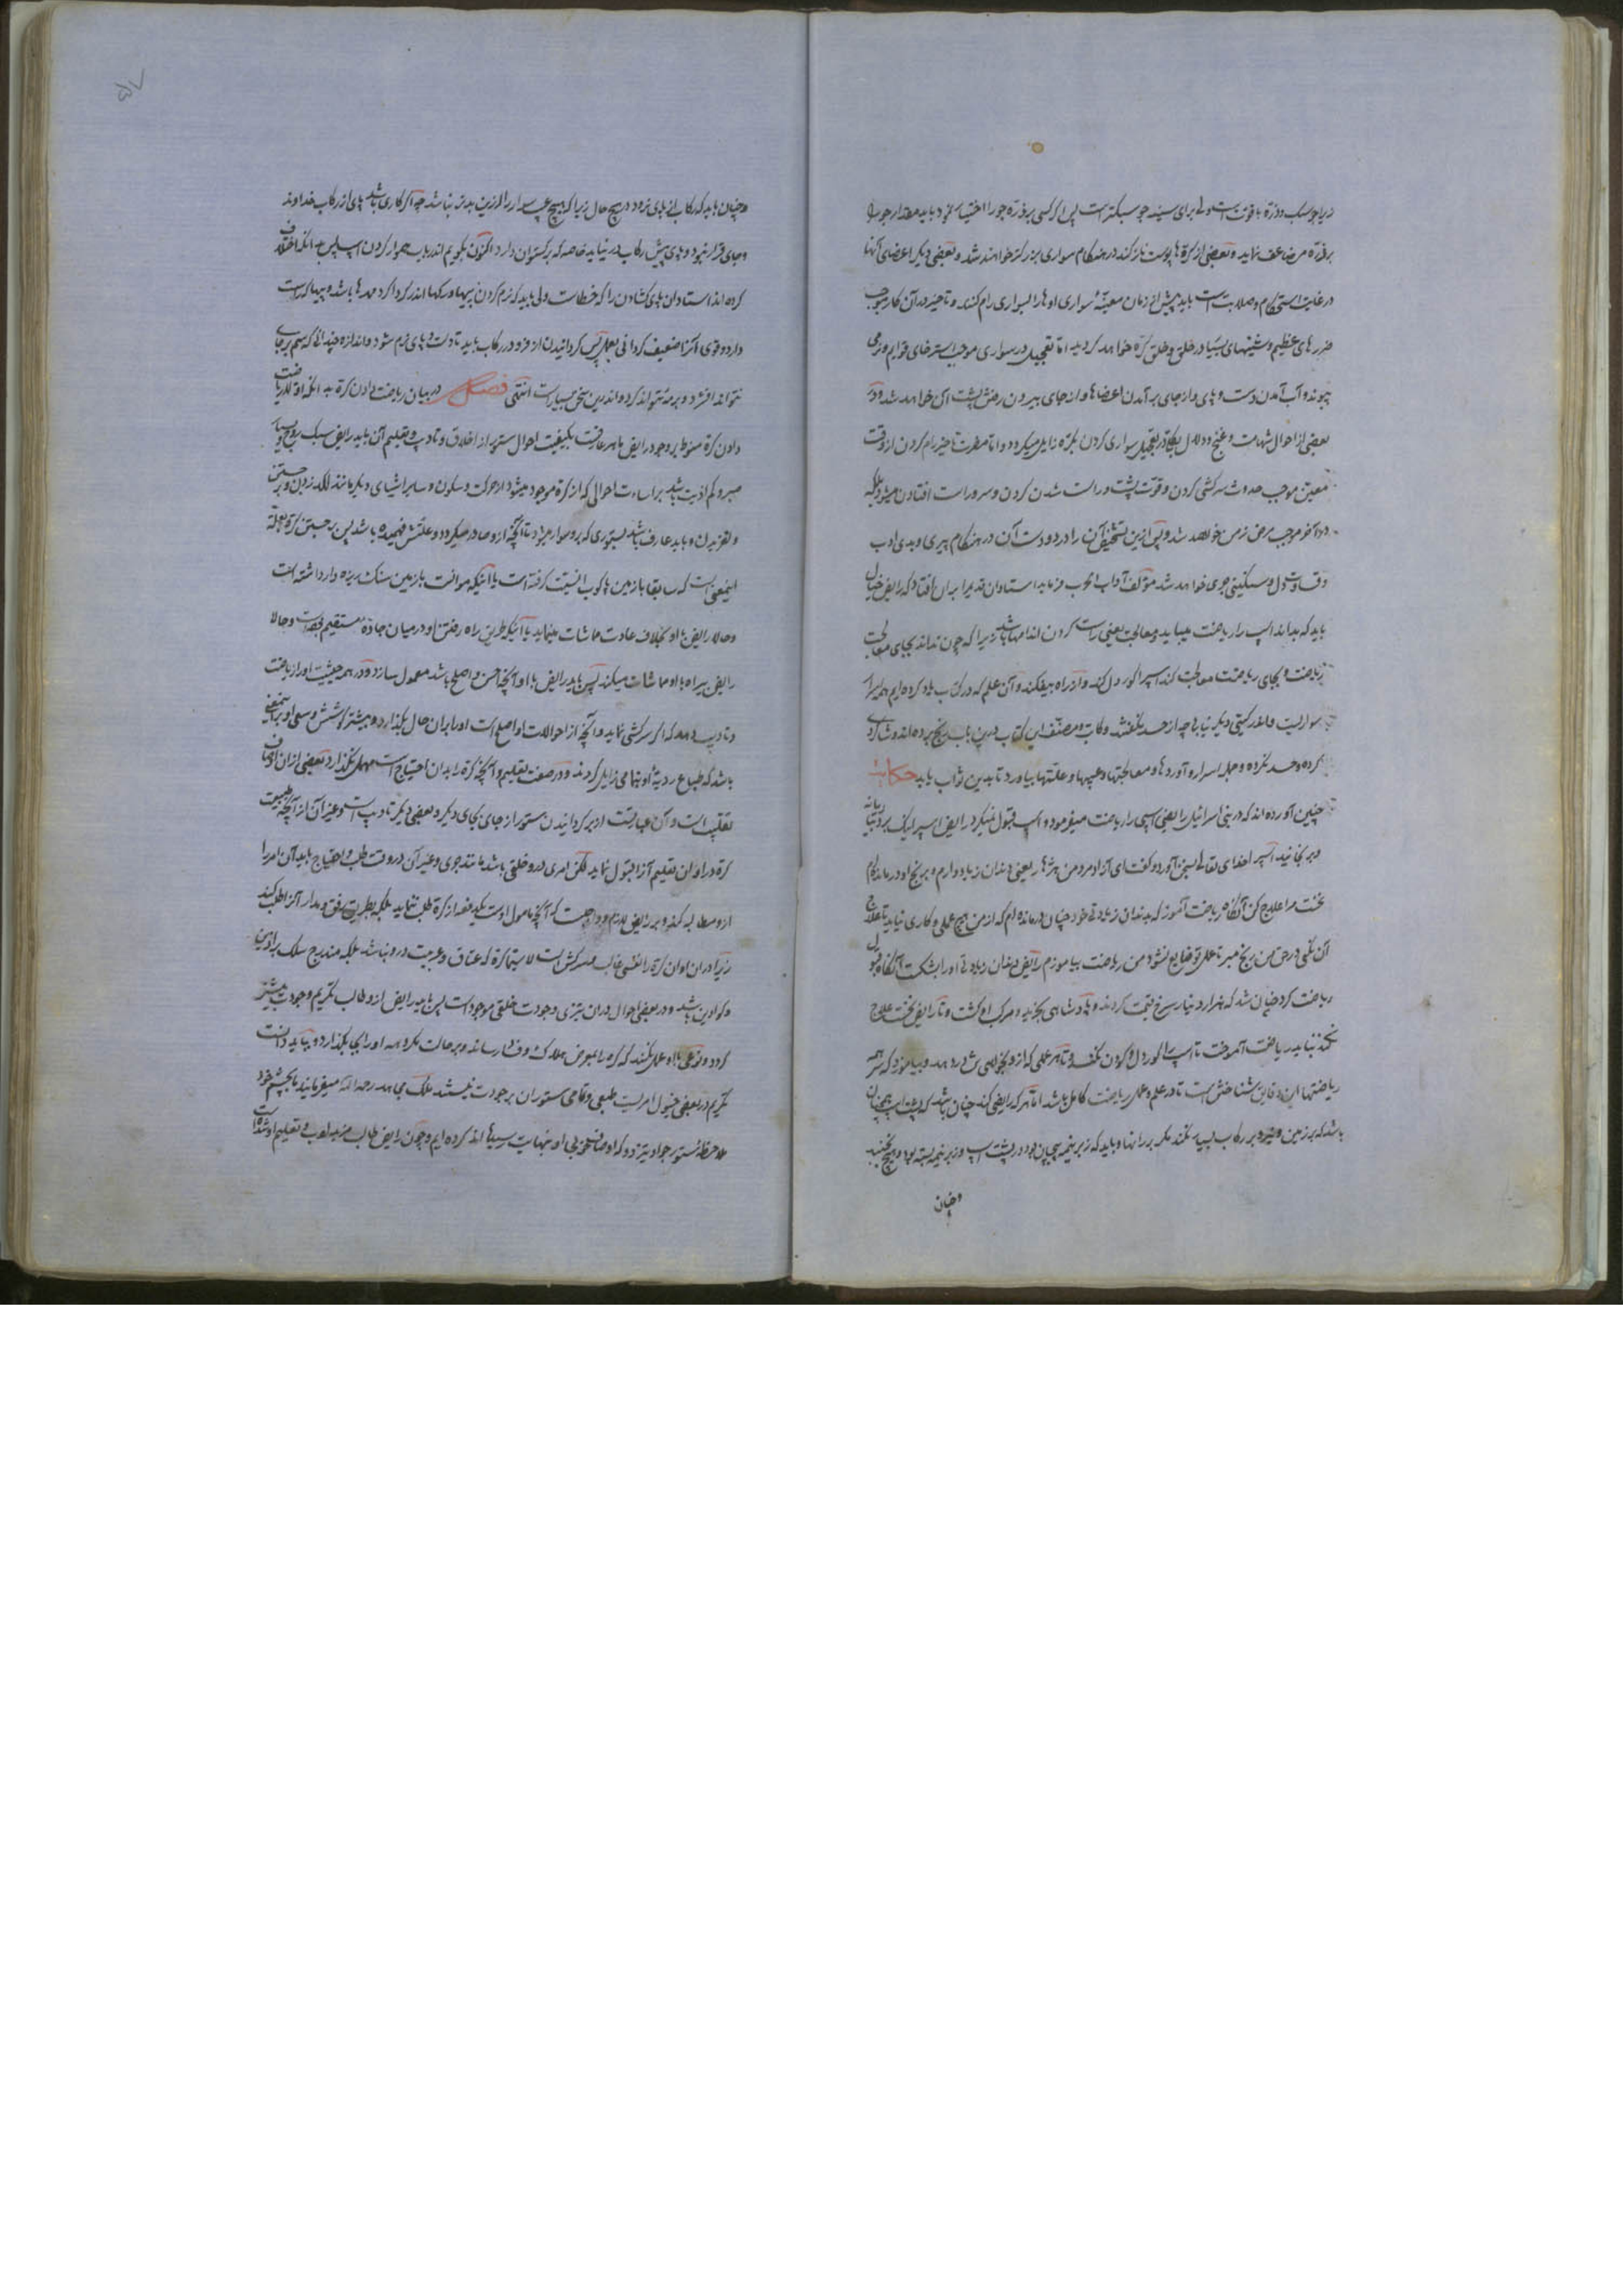 زیرا جو سبک و ذرّه با قوّت است ولی برای سینه جو سبکتر است پس اگر کسی بر ذرّه جو را اختیار نمود باید مقدار جو را
بر ذرّه مضاعف نماید و بعضی از کرّه ها پوست نازکند در هنگام سواری بزرکتر خواهند شد و بعضی دیکر اعضای آنها
در غایت استحکام و صلابت است باید پیش از زمان معینهٔ سواری اوها را بسواری رام کنند و تاخیر در آن کار موجب
ضررهای عظیم و شینهای بسیار در خلق و خلق کرّه خواهد کردید امّا تعجیل در سواری موجب استرخای قوایم و نرمی
پیوند و آب آمدن دست و پای و از جای برآمدن اعضاها و از جای بیرون رفتن پشت آن خواهد شد و در
بعضی از احوال شهامت و غنج و دلال بیکار در تعجیل سواری کردن بکرّه زایل میکردد و امّا مضرت تاخیر رام کردن از وقت
معین موجب حدوث سرکشی کردن و قوّت پشت و راست شدن کردن و سر و راست افتادن میشود بلکه
در آخر موجب مرض زمن خواهد شد و پس ازین تشخیص آن را در دو دست آن در هنگام پیری و بدی ادب
و قساوت دل و سنگینی خوی خواهد شد مؤلف آداب الحرب فرماید استادان قدیم را بران افتاد که رایض خیل
باید که بداند اسب را ریاضت میباید و معالجت یعنی راست کردن اندامها باشد زیرا که چون نداند بجای معالجت
ریاضت و بجای ریاضت معالجت کند اسب را کور دل کند و از راه بیفکند و آن علم که در کتاب یاد کرده ایم همه اسرار
سواریست و اندر کیتی دیکر نیابی چه از حسد نکفتند و کاتب و مصنّف این کتاب درین باب رنج برده اند و شاکردی
کرده و حسد نکرده و جمله اسرار و آوردها و معالجتها و عیبها و علّتها بیاورد تا بدین ثواب یابد حکایت
چنین آورده اند که در بنی اسرائیل رایضی اسبی را ریاضت میفرمود و اسب قبول نمیکرد رایض اسب را لیکن بزد تازیانه
و برنجانید اسب را خدای تعالی بسخن آورد و کفت ای آزاد مرد من هنرها یعنی دندان زیاده دارم و برنج او در مانده ام
نخست مرا علاج کن آنکاه ریاضت آموز که بدندان زیادتی خود چنان درمانده ام که از من هیچ عملی و کاری نیاید تا علاج
آن نکنی در حق من رنج مبر تا عمل تو ضایع نشود من ریاضت بیاموزم رایض دندان زیادتی او را بشکست آنکاه قبول
ریاضت کرد چنان شد که هزار دینار سرخ قیمت کردند و پادشاهی بخرید و مرکب او کشت و تا رایض نخست علاج
نکند نباید ریاضت آموخت تا اسب را کور دل و کودن نکند و تا هر علمی که از و بخواهی ش درد دهد و بیاموزد که سر همه
ریاضتها این دقایق شناختن است تا در علم و عمل ریاضت کامل باشد امّا هر که رایضی کند چنان باید که بر پشت اسب همچنان
باشد که بر زمین و نیرو بر رکاب بسیار نکند مکر بر رانها و باید که زبر نیمه پیچان بود در پشت اسب و زیر نیمه بسته بود و هیچ نجنبد
و چنان
و چنان باید که رکاب از پای نرود در هیچ حال زیرا که هیچ عیب سوار را از زین بدتر نباشد چه اکر کاری باشد پای از رکاب خداوند
و جای قرار نبود و پای پیش رکاب در نیاید خاصه که برکستوان دارد اکنون بکویم اندر باب هموار کردن اسب پس آنکه اختلاف
کرده اند استادان پای کشادن را که خطاست ولی باید که نرم کردن پیها و رکها اندر کرداکرد مهرها باشد و پیها که راست
دارد و قوی اکر ضعیف کردانی بعمل پس کردانیدن از فرود در رکاب باید تا دست و پای نرم شود و اندازه چندانی که سم بر جای
تواند افشرد و برمد نتواند کرد و اندرین سخن بسیار است انتهی فصل در بیان ریاضت دادن کرّه بدانکه اوّلا ریاضت
دادن کرّه منوط بر وجود رایض ماهر عارف بکیفیت احوال ستور از اخلاق و تادیب و تعلیم آن باید رایض سبک روح و بسیار
صبر و کم اذیت باشد بر اساءت احوالی که از کرّه موجود میشود از حرکت و سکون و سایر اشیای دیکر مانند لکد زدن و برجستن
و لغزیدن و باید عارف باشد بستوری که برو سوار میشود تا آنچه از و صادر میکردد و علّتش فهمیده باشد پس برجستن کرّه بعلّة
اینمعنی است که سابقا بازمین ناکوب انسیت کرفته است یا اینکه موانست بازمین سنک ریزه دار داشته است
و حالا رایض با او بخلاف عادت مماشات مینماید یا آنکه طریق راه رفتن او در میان جادهٔ مستقیم بوده است و حالا
رایض بیراه با او مماشات میکند پس باید رایض با او آنچه احسن و اصلح باشد معمول سازد و در همه حیثیت او را ریاضت
و تادیب دهد که اکر سرکشی نماید و آنچه از احوالات او اصلح است او را بران حال بکذارد و بیشتر کوشش و سعی او برین معنی
باشد که طباع ردیهٔ او بتمامی زایل کردند و در صفت تعلیم و آنچه کرّه را بدان احتیاج است مهمل نکذارد بعضی از ان اوصاف
تقلیب است و آن عبارت از برکردانیدن ستور از جای بجای دیکر و بعضی دیکر تادیب است و غیر آن از آنچه طبیعت
کرّه در اوان تعلیم آنرا قبول نماید لکن امری درو خلقی باشد مانند جوی و غیر آن در وقت طلب و احتیاج باید آن امر را
ازو مطالبه کند و بر رایض لازم و واجبست که آنچه مامول اوست یکدفعه از کرّه طلب ننماید بلکه بطریق رفق و مدارا آنرا طلب کند
زیرا در ان اوان کرّه را نفسی غالب و سرکش است لاسیّما کرّه که عتاق و عربیت در و نباشد بلکه مندرج سلک براذین
و کوادین باشد و در بعضی احوال در ان تیزی وجودت خلقی موجود است پس باید رایض از و طالب تکریم وجودت بیشتر
کردد و نوعی با او عمل نکند که کرّه را بمعرض هلاکت و فنا رساند و بر حالت مکروهه او را بی بکذارد و بباید دانست
تکریم در بعضی خیول امریست طبعی و تمامی ستوران بر جودت نیستند ملک مجاهد رحمه الله میفرمایند باید بچشم خود
ملاحظهٔ ستور جواد تیز دو که اوصاف خوبی او بنهایت رسیدها اند کرده ایم و چون رایض طالب مزید ادب و تعلیم او شده است